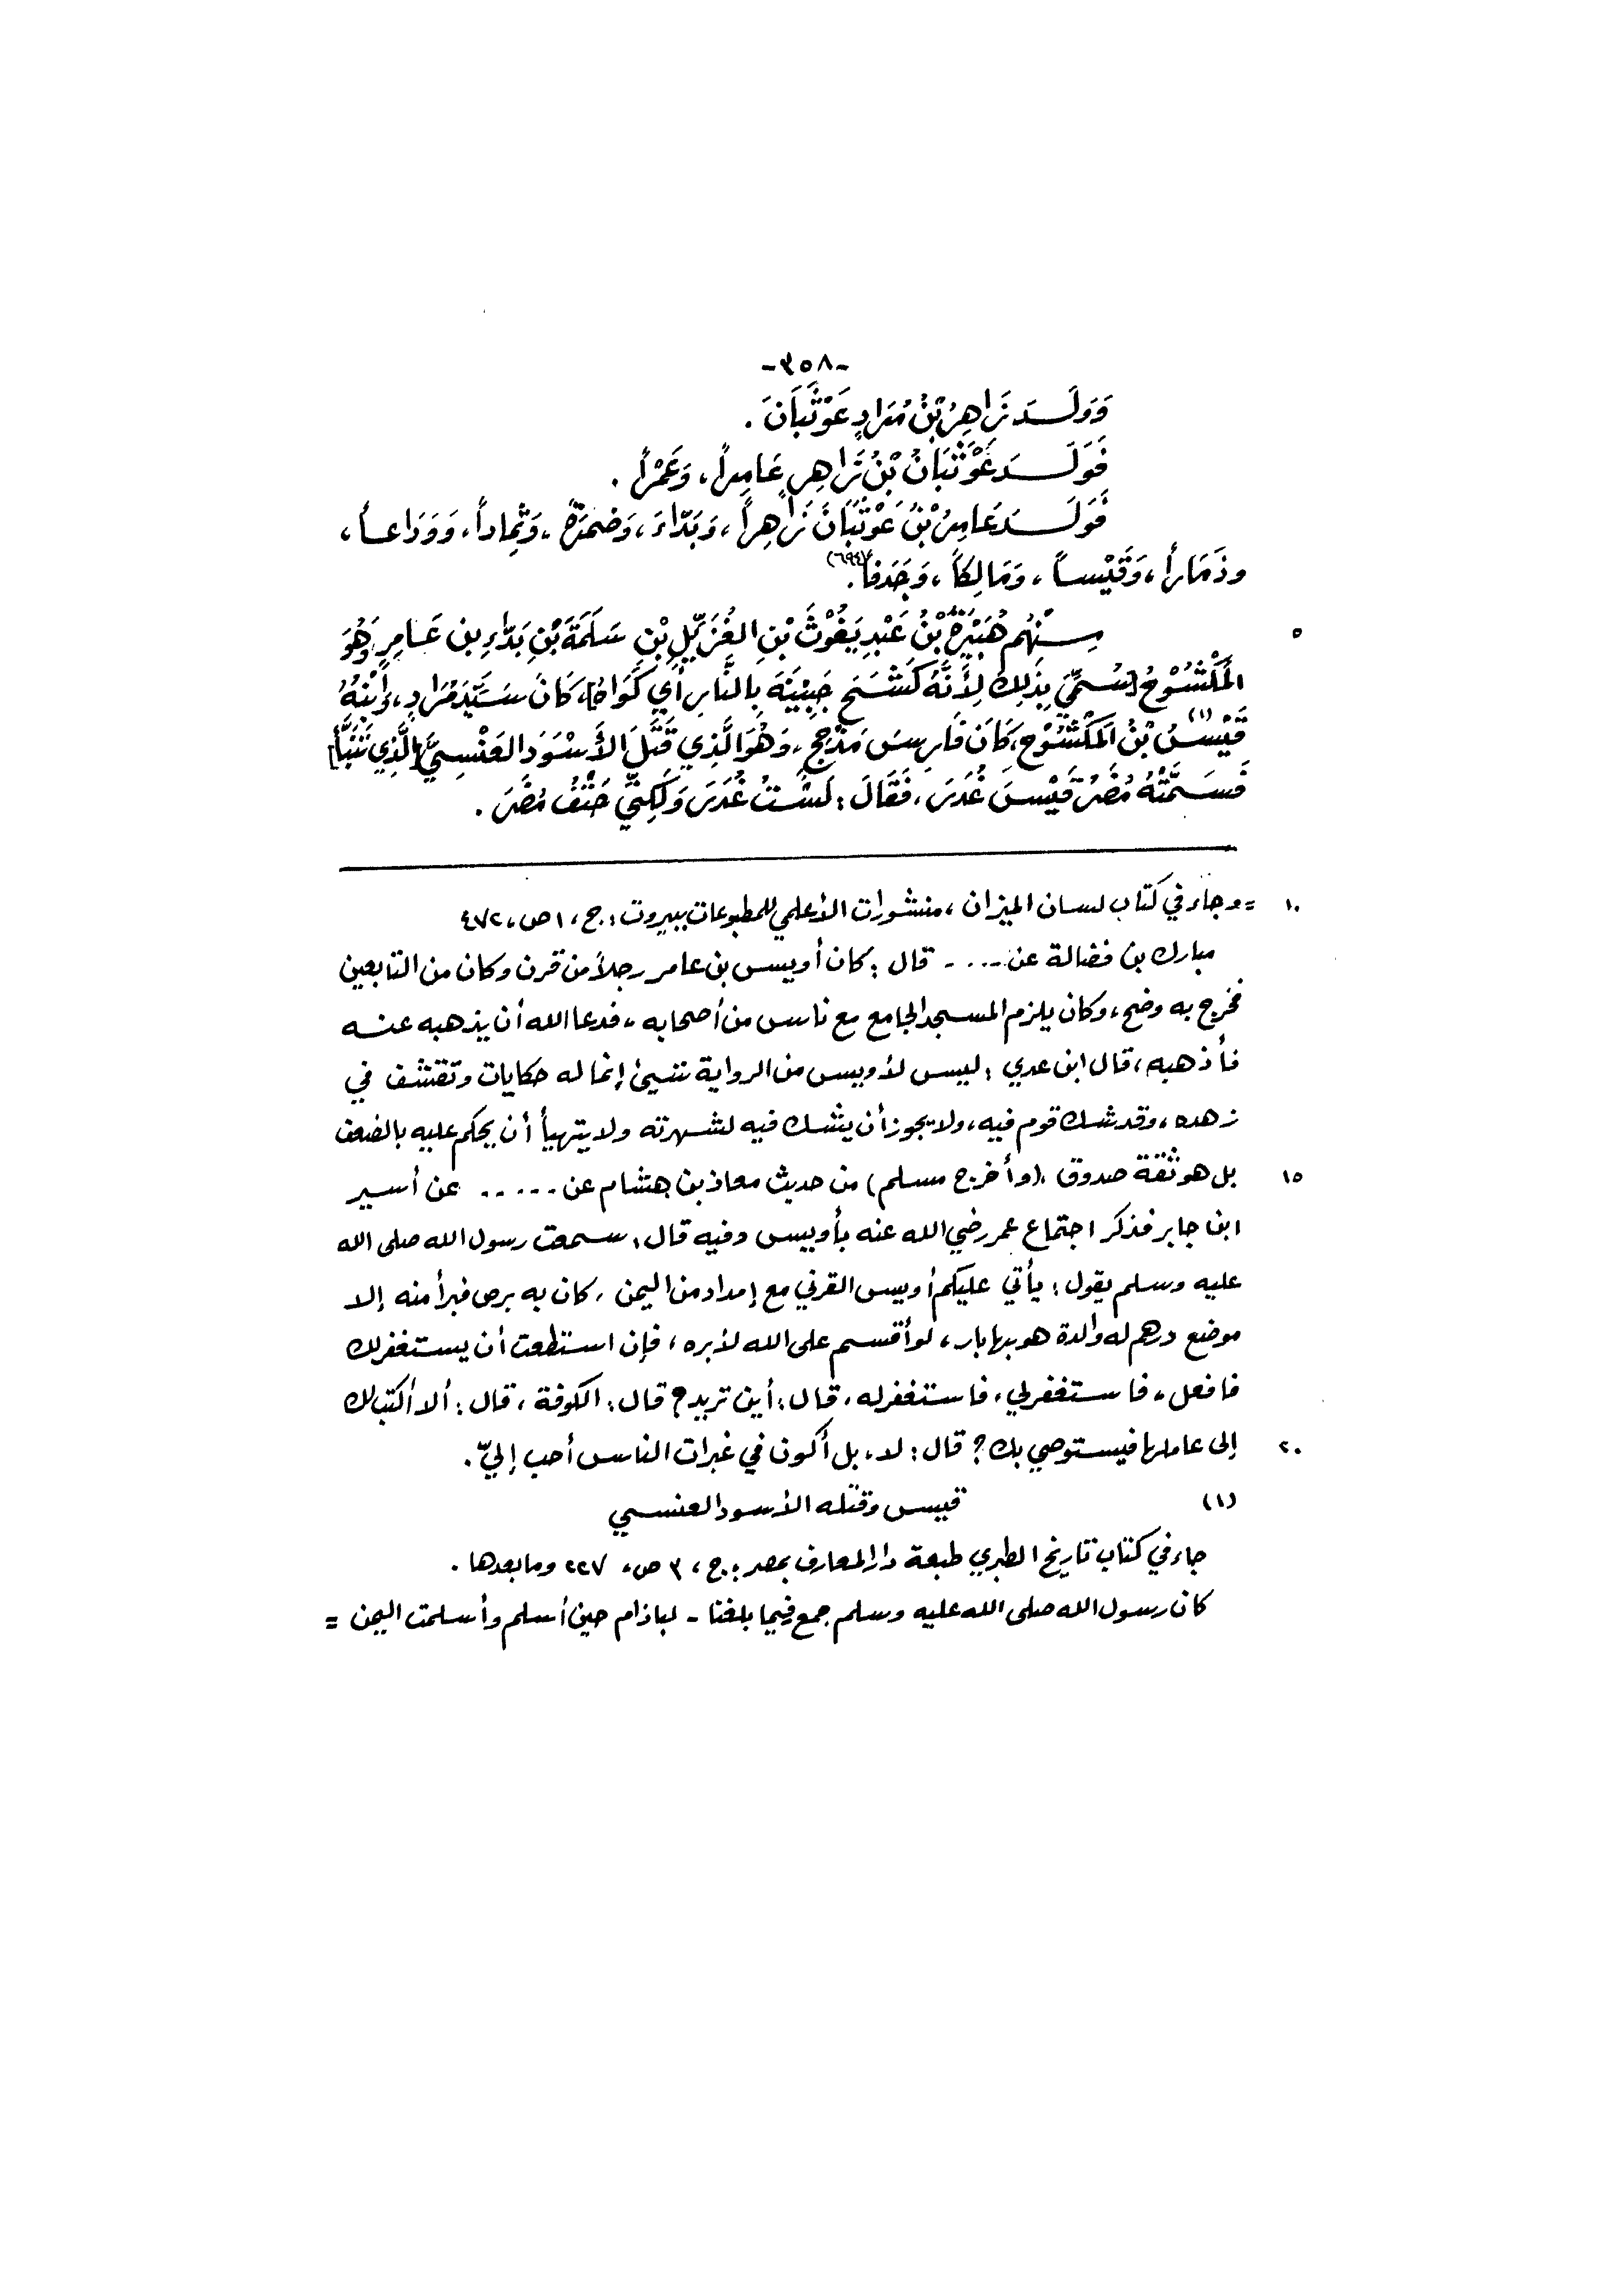 -٣٥٨-
وَوَلَـدَ زَاهِرُ بْنُ مُرَادٍ عَوْثَبَانَ .
فَوَلَـدَ عَوْثَبَانُ بْنُ زَاهِرٍ عَامِراً، وَعَمْراً .
فَوَلَـدَ عَامِرُ بْنُ عَوْثَبَانَ زَاهِراً، وَبَدّاءَ، وَضَمْرَةَ، وَثِمِاداً، وَوَدَاعـاً،
وذَمَاراً، وَقَيْساً، وَمَالِكاً، وَجَدَفاً.
٥ مِـنْهُم هُبَيْرَةُ بْنُ عَبْدِ يَغُوْثَ بْنِ الغُزَيِّلِ بْنِ سَلَمَةَ بْنِ بَدَّاءِ بنِ عَـامِرٍ، وَهُوَ
المَكْشُوْحُ [سُمِّيَ بِذَلِكَ لِأَنَّهُ كَشَحَ جَبِيْنَهُ بِالنَّارِ أَي كَوَاهُ]، كَانَ سَـيِّدَ مُرَادٍ، وَابْنُهُ
قَيْسُ بْنُ المَكْشُوْحِ(١)، كَانَ فَارِسَ مَذْحِجٍ، وَهُوَ الَّذِي قَتَلَ الأَسْوَدَ العَنْسِيَّ [الَّذِي تَنَبَّأَ]
فَسَـمَّتْهُ مُضَرُ قَيْسَ غُدَرَ، فَقَالَ: لَسْتُ غُدَرَ وَلَكِنِّي حَتْفُ مُضَرَ .
١٠ = وجاء في كتاب لسان الميزان، منشورات الأعلمي للمطبوعات ببيروت: ج، ١ ص، ٤٧٢
مبارك بن فضالة عن ..... قال: كان أويس بن عامر رجلاً من قرن وكان من التابعين
فخرج به وضح، وكان يلزم المسجد الجامع مع ناس من أصحابه، فدعا الله أن يذهبه عنـه
فأذهبه، قال ابن عدي: ليس لأويس من الرواية شيئ إنما له حكايات وتقشف في
زهده، وقد شك قوم فيه، ولا يجوز أن يشك فيه لشهرته ولا يتهيأ أن يحكم عليه بالضعف
١٥ بل هو ثقة صدوق، (وأخرج مسلم) من حديث معاذ بن هشام عن ..... عن أسير
ابن جابر فذكر اجتماع عمر رضي الله عنه بأويس وفيه قال، سمعت رسول الله صلى الله
عليه وسلم يقول: يأتي عليكم أويس القرني مع إمداد من اليمن، كان به برص فبرأ منه إلا
موضع درهم له والدة هو بها بار، لو أقسم على الله لأبره، فإن استطعت أن يستغفر لك
فافعل، فاستغفر لي، فاستغفر له، قال: أين تريد؟ قال: الكوفة، قال: ألا أكتب لك
٢٠ إلى عاملها فيستوصي بك؟ قال: لا، بل أكون في غبرات الناس أحب إليّ.
(١) قيس وقتله الأسود العنسي
جاء في كتاب تاريخ الطبري طبعة دار المعارف بمصر: ج، ٣ ص، ٢٢٧ وما بعدها.
كان رسول الله صلى الله عليه وسلم جمع فيما بلغنا - لباذام حين أسلم وأسلمت اليمن =